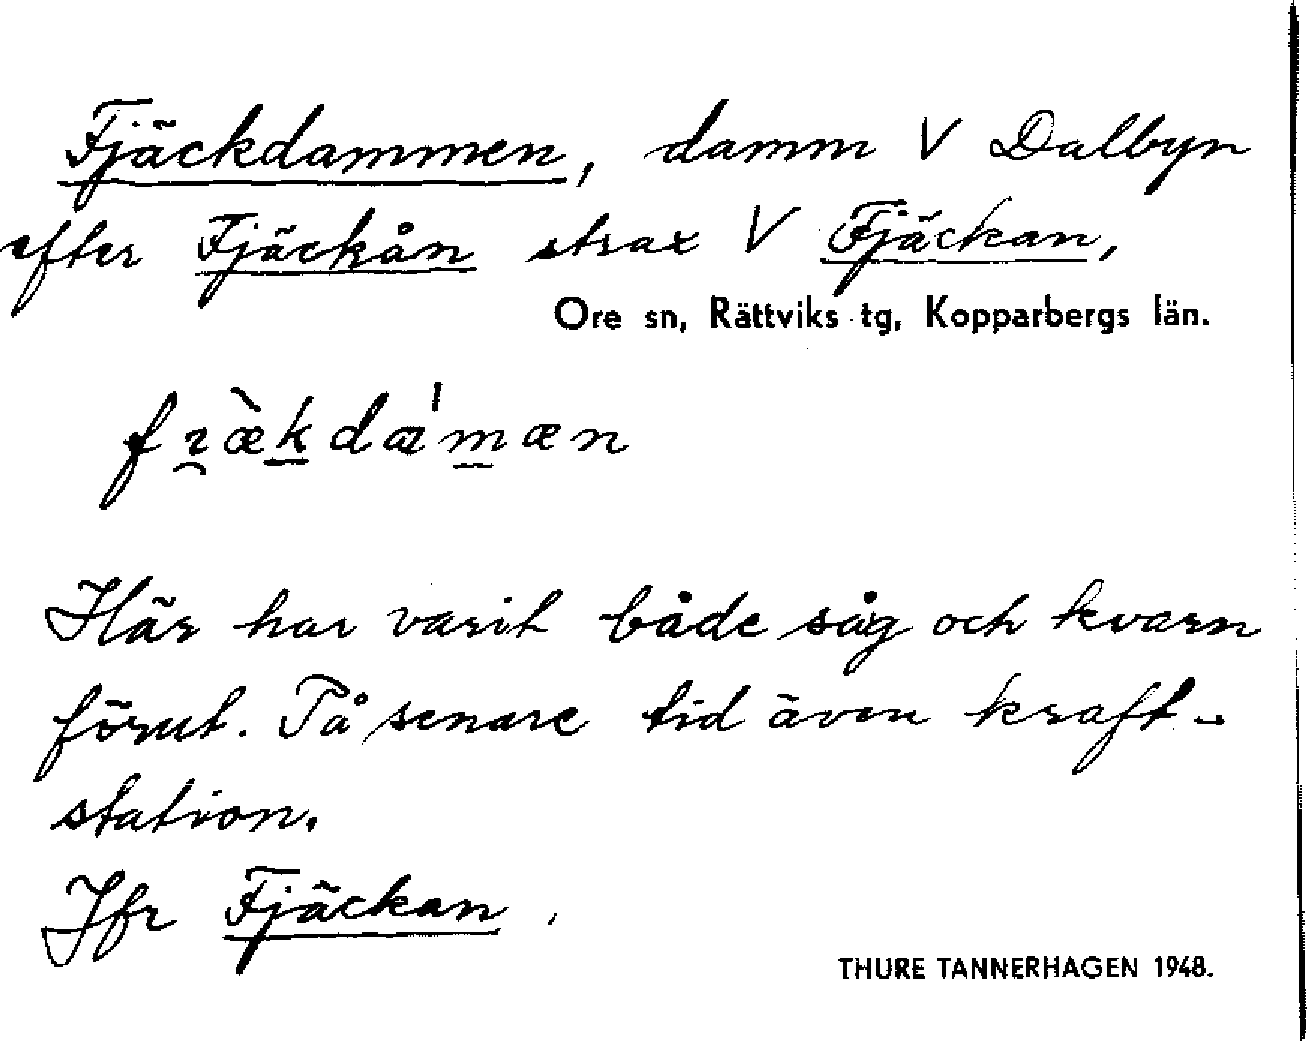 Fjäckdammen, damm V Dalbyn
efter Fjäckån strax V Fjäckan,
Ore sn, Rättviks tg, Kopparbergs län.
Här har varit både såg och kvarn
förut. På senare tid även kraft-
station.
Jfr Fjäckan.
THURE TANNERHAGEN 1948.